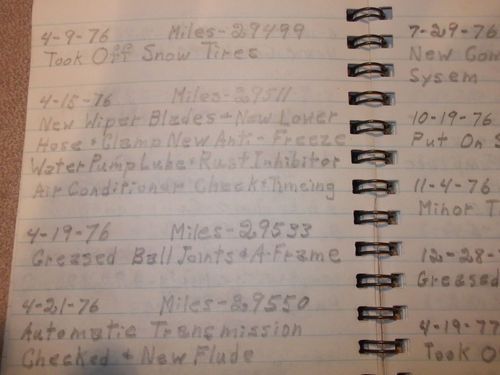 4-9-76 Miles-29499
Took Off Snow Tires
4-15-76 Miles-29511
New Wiper Blades + New Lower
Hose + Clamp New Anti-Freeze
Water Pump Lube + Rust Inhibitor
Air Conditionar Check + Timeing
4-19-76 Miles-29533
Greased Ball Joints + A-Frame
4-21-76 Miles-29550
Automatic Transmission
Checked + New Flude
7-29-76
New
Sysem
10-19-76
Put On
11-4-76
Minor
12-28-
Greased
4-19-77
Took